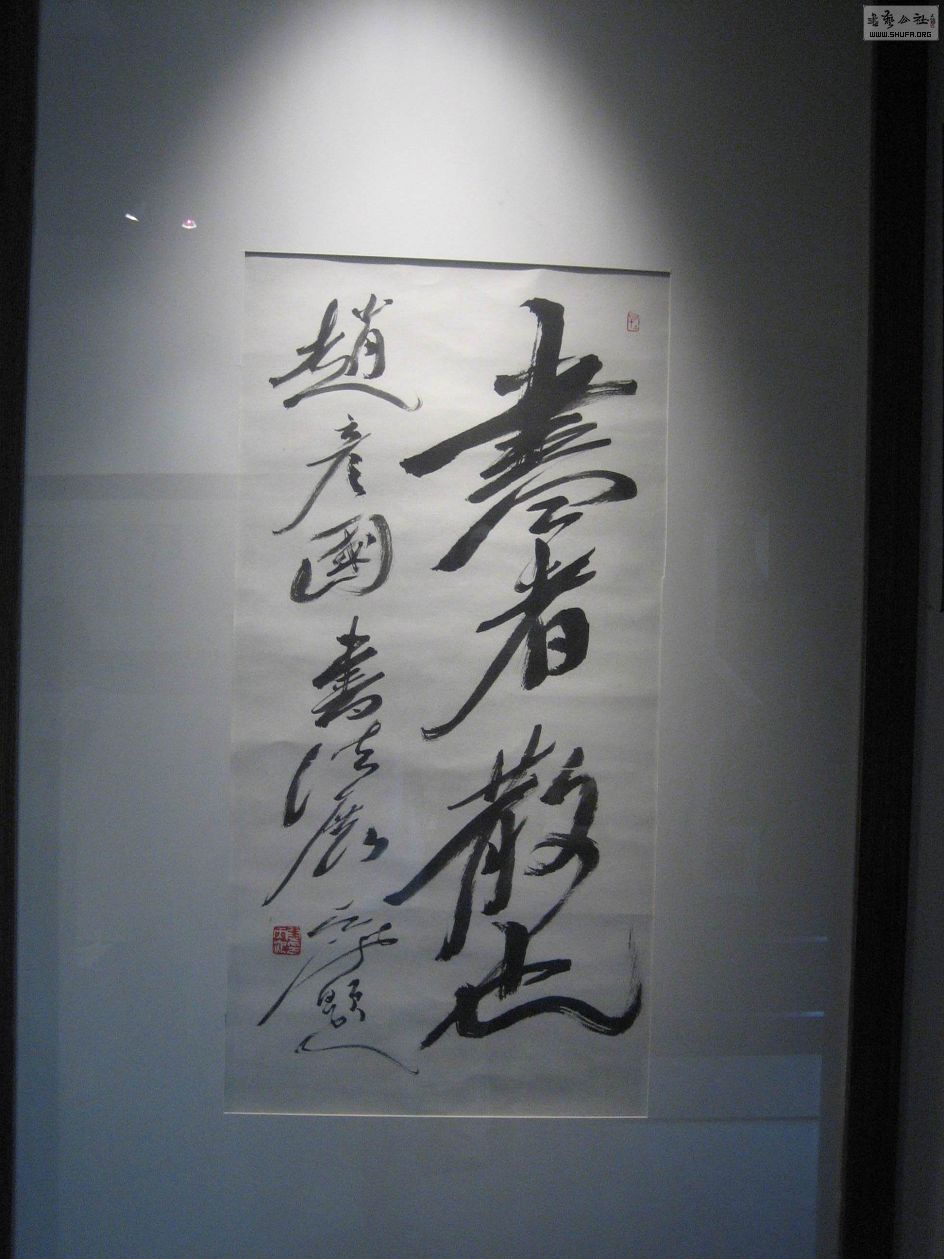 書者散也
趙彦國書法展
題
書藝公社
WWW.SHUFA.ORG